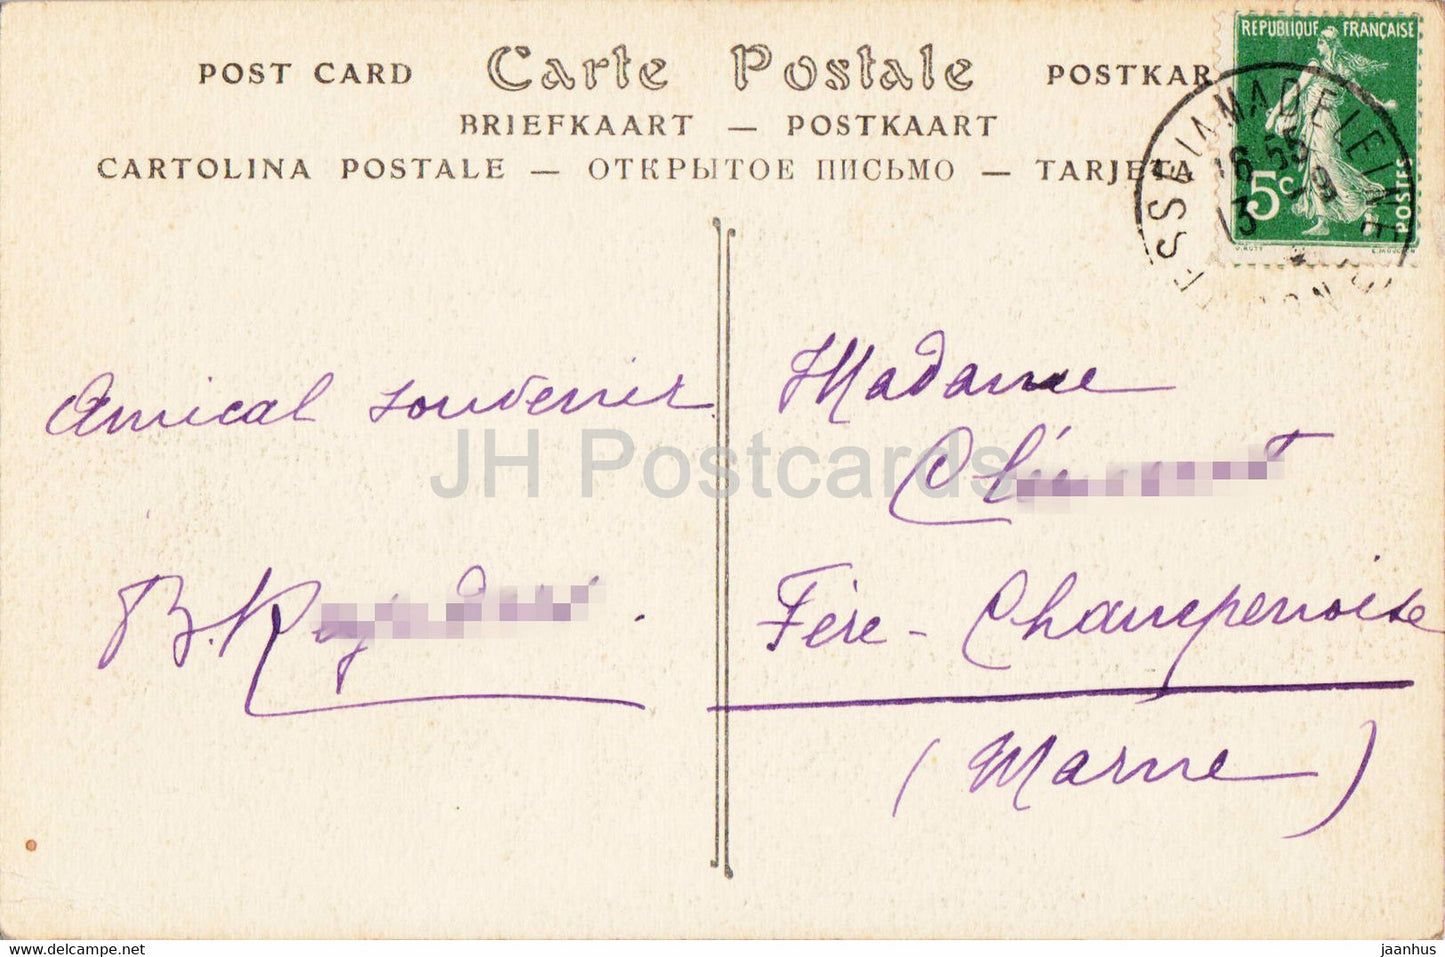 POST CARD Carte Postale POSTKAR
BRIEFKAART — POSTKAART
CARTOLINA POSTALE — ОТКРЫТОЕ ПИСЬМО — TARJETA
REPUBLIQUE FRANÇAISE
5c
POSTES
MADELEINE
16 55
13 - 9
Amical souvenir
B.
Madame
Fère-Champenoise
(Marne)
JH Postcards
https://www.delcampe.net
jaanhus